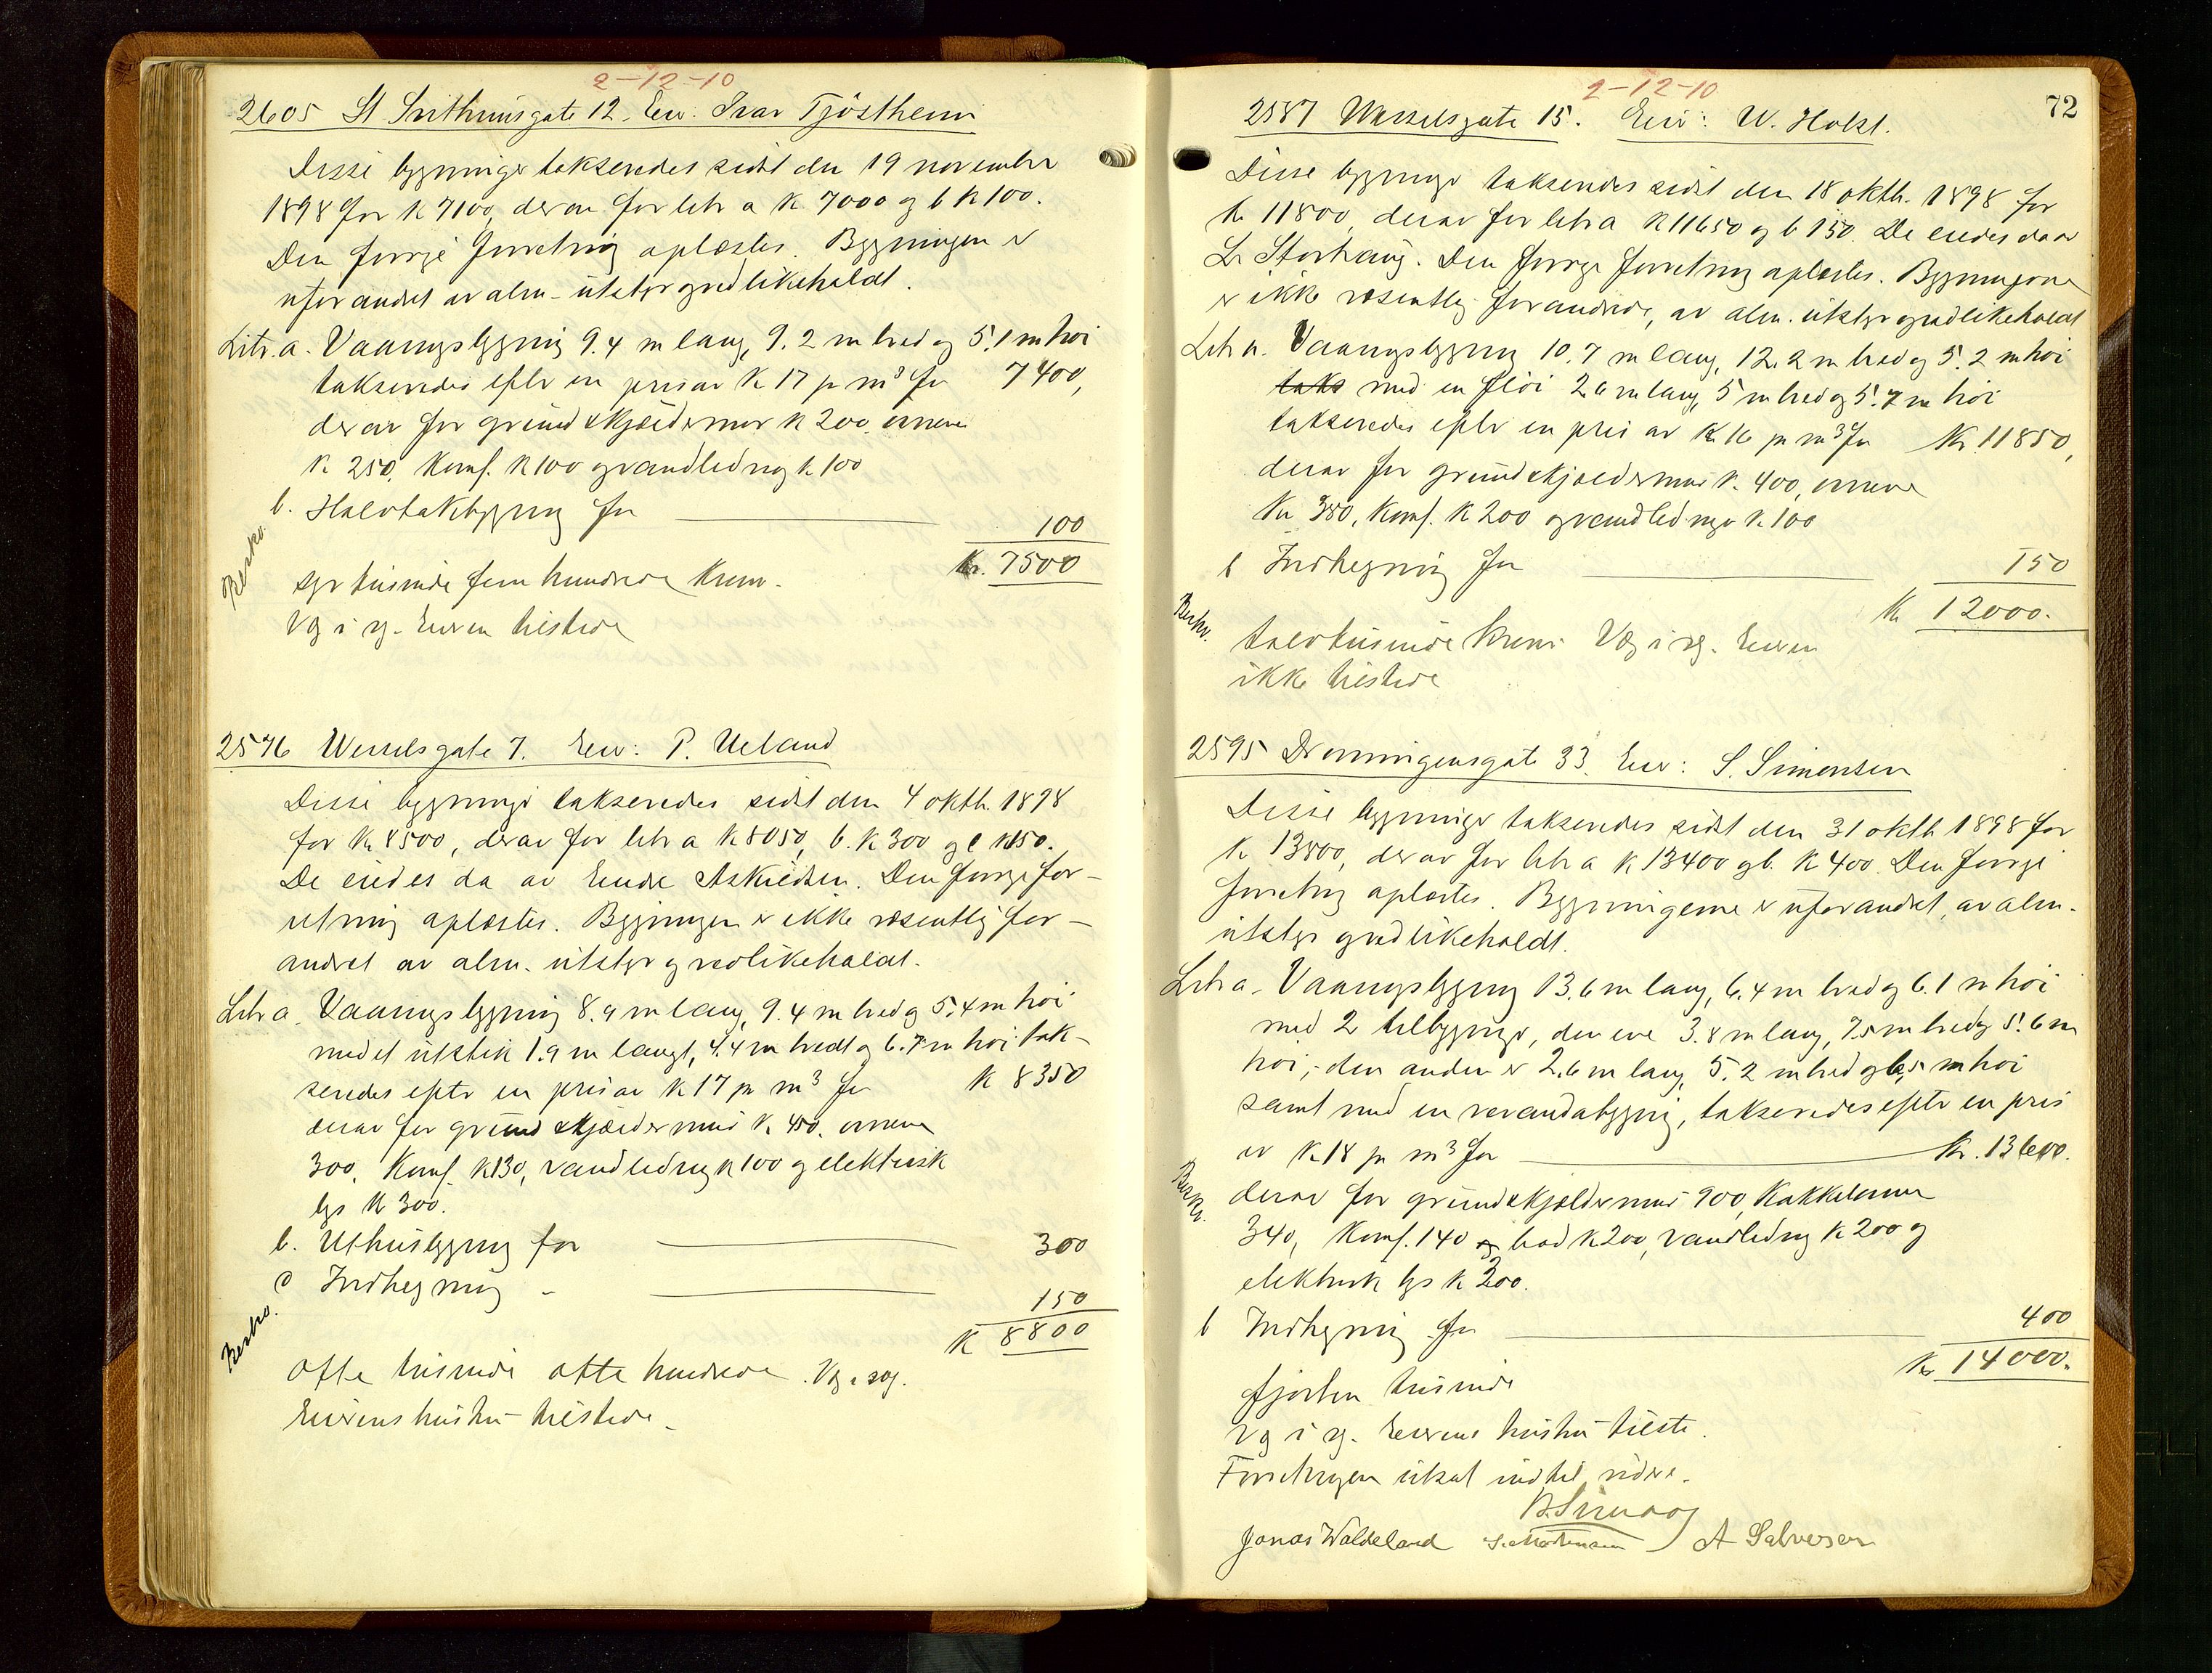 2-12-10
2605 St Svithunsgate 12. Eier: Ivar Tjöstheim
Disse bygninger takseredes sidst den 19 november
1898 for K 7100, derav for litr a K 7000 og b K 100.
Den forrige forretning oplæstes. Bygningen er
uforandret av alm. utstyr godt vedlikeholdt.
Litr. a. Vaaningsbygning 9.4 m lang, 9.2 m bred og 5.1 m høi
takseredes efter en pris av K 17 pr m³ for 7400,
derav for grund & kjældermur K 200. ovnene
K 250, Komf. K 100 og vandledning K 100
b. Halvtaksbygning for 100
Kr. 7500
Beskr.
syv tusinde fem hundrede Kroner.
V g i sg. Eieren tilstede
2576 Wesselsgate 7. Eier: P. Ueland
Disse bygninger takseredes sidst den 4 oktb. 1898
for Kr 8500, derav for litr a K 8050, b. K 300 og c K 150.
De eiedes da av Endre Askildsen. Den forrige for-
retning oplæstes. Bygningen er ikke væsentlig for-
andret av alm. utstyr og vedlikeholdt.
Litr a. Vaaningsbygning 8.9 m lang, 9.4 m bred og 5.4 m høi
med et utstik 1.9 m langt, 4.4 m bredt og 6.7 m høi tak-
seredes efter en pris av K 17 pr m³ for K 8350
derav for grund & kjældermur K. 450. ovnene
300, Komf. K 130, vandledning K 100 og elektrisk
lys K 300.
b. Uthusbygning for 300
c Indhegning - 150
K 8800
Beskr.
Otte tusinde otte hundrede. V g i sg.
Eierens hustru tilstede.
2-12-10
72
2587 Wesselsgate 15. Eier: W. Holst.
Disse bygninger takseredes sidst den 18 oktb. 1898 for
K 11800, derav for litr a K 11650 og b 150. De eiedes da av
L. Storhaug. Den forrige forretning oplæstes. Bygningerne
er ikke væsentlig forandrede, av alm. utstyr og vedlikeholdt
Litr a. Vaaningsbygning 10.7 m lang, 12.2 m bred og 5.2 m høi
taks med en fløi 2.6 m lang, 5 m bred og 5.7 m høi
takseredes efter en pris av K 16 pr m³ for Kr. 11850,
derav for grund & kjældermur K. 400, ovnene
Kr 350, Komf. K 200 og vandledninger K. 100
b Indhegning for 150
K 12000.
Beskr.
tolv tusinde Kroner V g i sg. Eieren
ikke tilstede
2595 Dronningensgate 33. Eier: S. Simonsen
Disse bygninger takseredes sidst den 31 oktb 1898 for
K 13800, derav for litr a K 13400 og b. K 400. Den forrige
forretning oplæstes. Bygningerne er uforandret, av alm.
utstyr godt vedlikeholdt.
Litr a. Vaaningsbygning 13.6 m lang, 6.4 m bred og 6.1 m høi
med 2 tilbygninger, den ene 3.8 m lang, 7.5 m bred og 5.6 m
høi, den anden er 2.6 m lang, 5.2 m bred og 6.5 m høi
samt med en verandabygning, takseredes efter en pris
av K 18 pr m³ for Kr. 13600.
Beskr.
derav for grund & kjældermur 900, Kakkelovner
340, Komf. 140 og bad K 200, vandledning K 200 og
elektrisk lys K 200.
b Indhegning for 400
Kr 14000.
fjorten tusinde
V g i sg. Eierens hustru tilste.
Forretningen utsat indtil videre.
Jonas Waldeland S. Mortensen A Salvesen